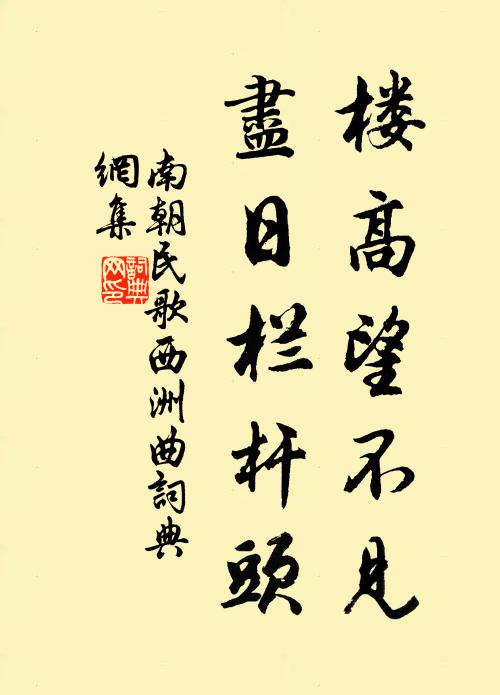 楼高望不见
盡日栏杆頭
南朝民歌西洲曲詞典
網集
詞典
网印